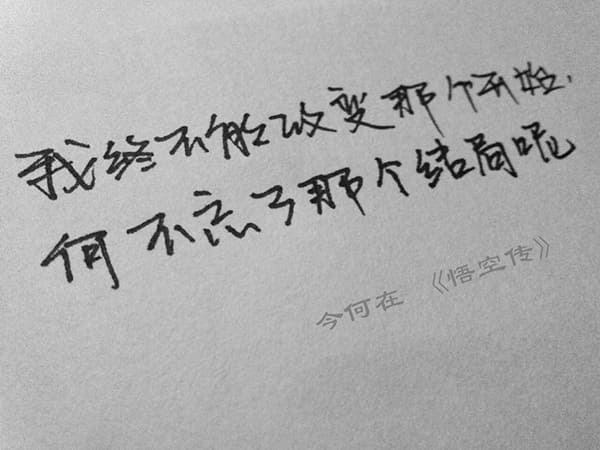 我终不能改变那个开始，
何不忘了那个结局呢
今何在 《悟空传》